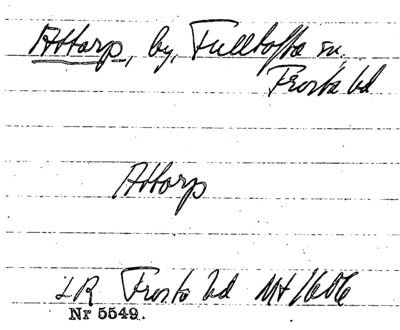 Attarp, by, Fulltofta sn.
Frosta hd
Attarp
LR Frosta hd Mt 1606
Nr 5549.